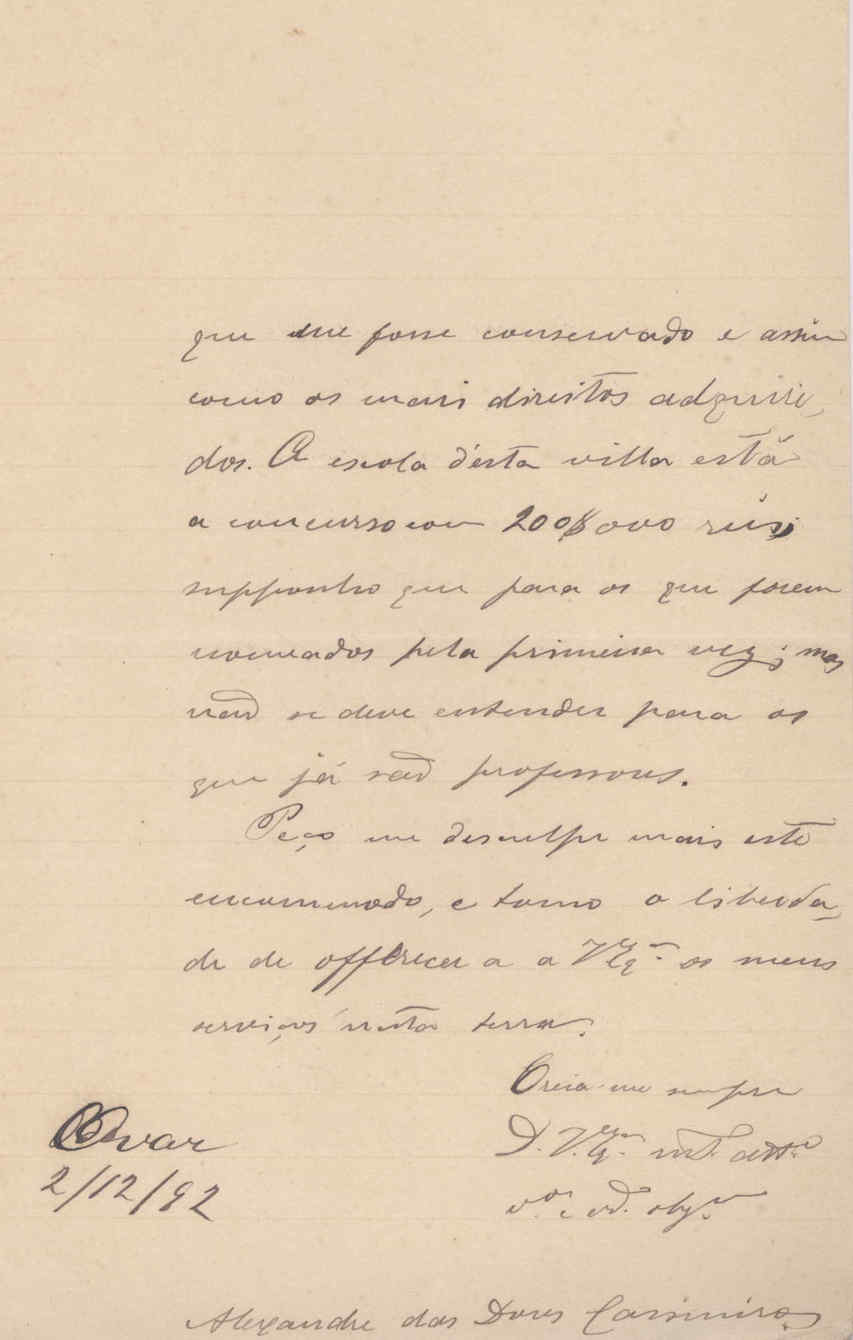 que me fosse conservado e assim
como os mais direitos adquiri-
dos. A escola d'esta villa está
a concurso com 200$000 réis;
supponho que para os que forem
nomeados pela primeira vez; mas
não se deve entender para os
que já são professores.
Peço me desculpe mais este
encommodo, e tomo a liberda-
de de offerecer a a V Exª os meus
serviços n'esta terra.
Creia-me sempre
D. V. Exª mt.º attº
v.ºr e cr.º obgº
Ovar
2/12/92
Alexandre das Dores Casimiro